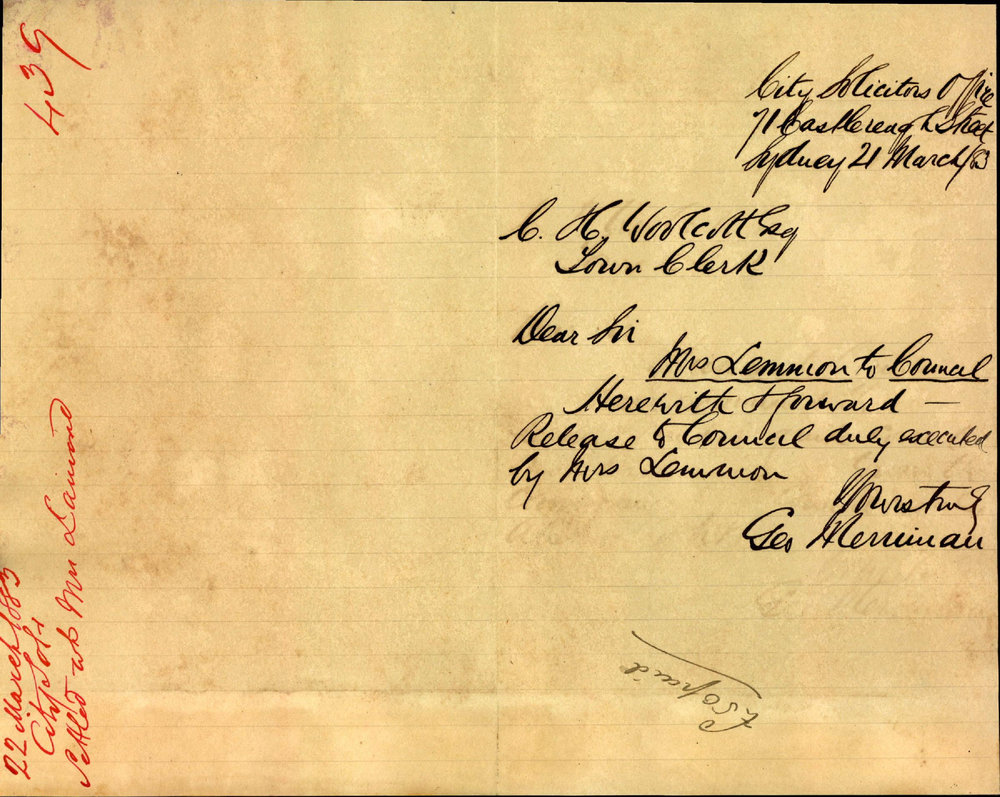 439
22 March 1883
City Solr
Settled wh Mrs Lamond
City Solicitors Office
71 Castlereagh Street
Sydney 21 March/83
C. H. Woolcott Esq
Town Clerk
Dear Sir
Mrs Lemmon to Council
Herewith I forward —
Release to Council duly executed
by Mrs Lemmon
Yours truly
Geo Merriman
£50 paid